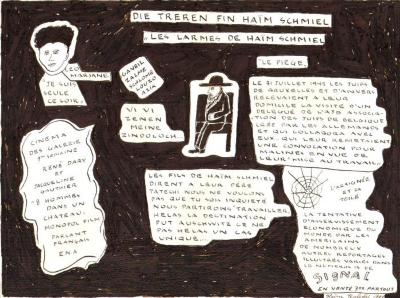 DIE TREREN FIN HAÏM SCHMIEL
LES LARMES DE HAIM SCHMIEL
20
MARJANE
"JE SUIS
SEULE
CE SOIR"
GAVRIL
ZALME
SCHLOIME
LOUZO
ASIA
"LE PIÈGE"
LE 31 JUILLET 1942 LES JUIFS
DE BRUXELLES ET D'ANVERS
RECEVAIENT A LEUR
DOMICILE LA VISITE D'UN
DELEGUE DE L'AJB ASSOCIA-
TION DES JUIFS DE BELGIQUE
CRÉE PAR LES ALLEMANDS
ET QUI COLLABORA AVEC
EUX, QUI LEUR REMETTAIENT
UNE CONVOCATION POUR
MALINES EN VUE DE
LEUR MISE AU TRAVAIL
VI VI
ZENEN
MEINE
ZINDOLOCH
CINEMA
DES GALERIE
SEMAINE
RENÉ DARY
ET
JACQUELINE
GAUTHIER
"8 HOMMES
DANS UN
CHATEAU"
MONOPOL FILM
PARLANT
FRANÇAIS
ENA
LES FILS DE HAIM SCHMIEL
DIRENT A LEUR PÈRE
TATESHI NOUS NE VOULONS
PAS QUE TU SOIS INQUIETE
NOUS PARTIRONS TRAVAILLER
HELAS LA DESTINATION
FUT AUSCHWITZ CE NE
FUT PAS HELAS UN CAS
UNIQUE...
L'ARAIGNÉE
ET SA
TOILE
LA TENTATIVE
D'ASSERVISSEMENT
ECONOMIQUE DU
MONDE PAR LES
AMERICAINS
DE NOMBREUX
AUTRE REPORTAGES
ILLUSTRÉS VARIÉS DANS
LE NUMERO 19 DE
SIGNAL
EN VENTE PARTOUT